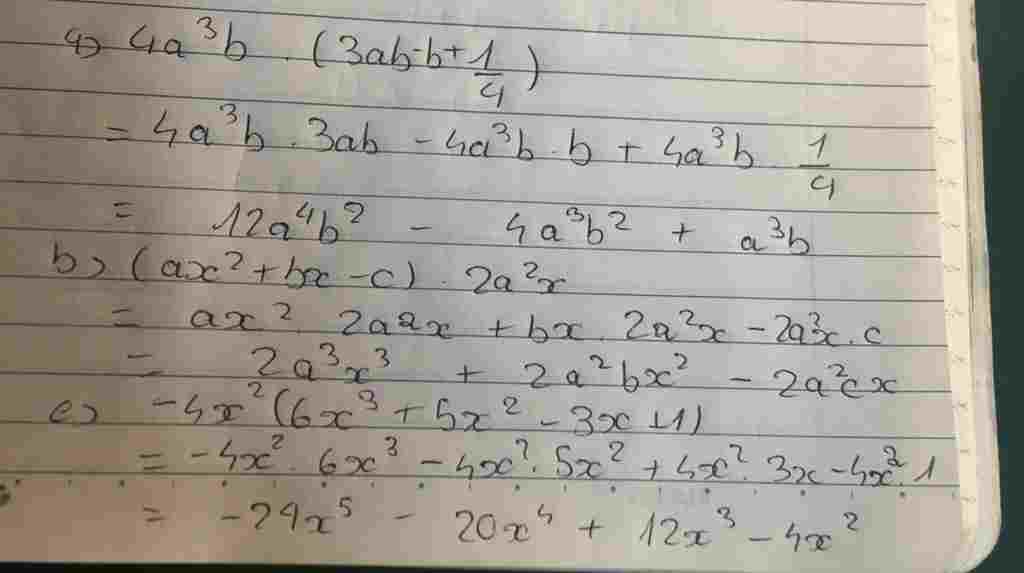 a) 4a³b . (3ab-b+1/4)
= 4a³b . 3ab - 4a³b . b + 4a³b 1/4
= 12a⁴b² - 4a³b² + a³b
b) (ax²+bx-c) . 2a²x
= ax² . 2a²x + bx . 2a²x - 2a²x . c
= 2a³x³ + 2a²bx² - 2a²cx
c) -4x²(6x³ + 5x² - 3x +1)
= -4x² . 6x³ - 4x² . 5x² + 4x² . 3x - 4x² . 1
= -24x⁵ - 20x⁴ + 12x³ - 4x²